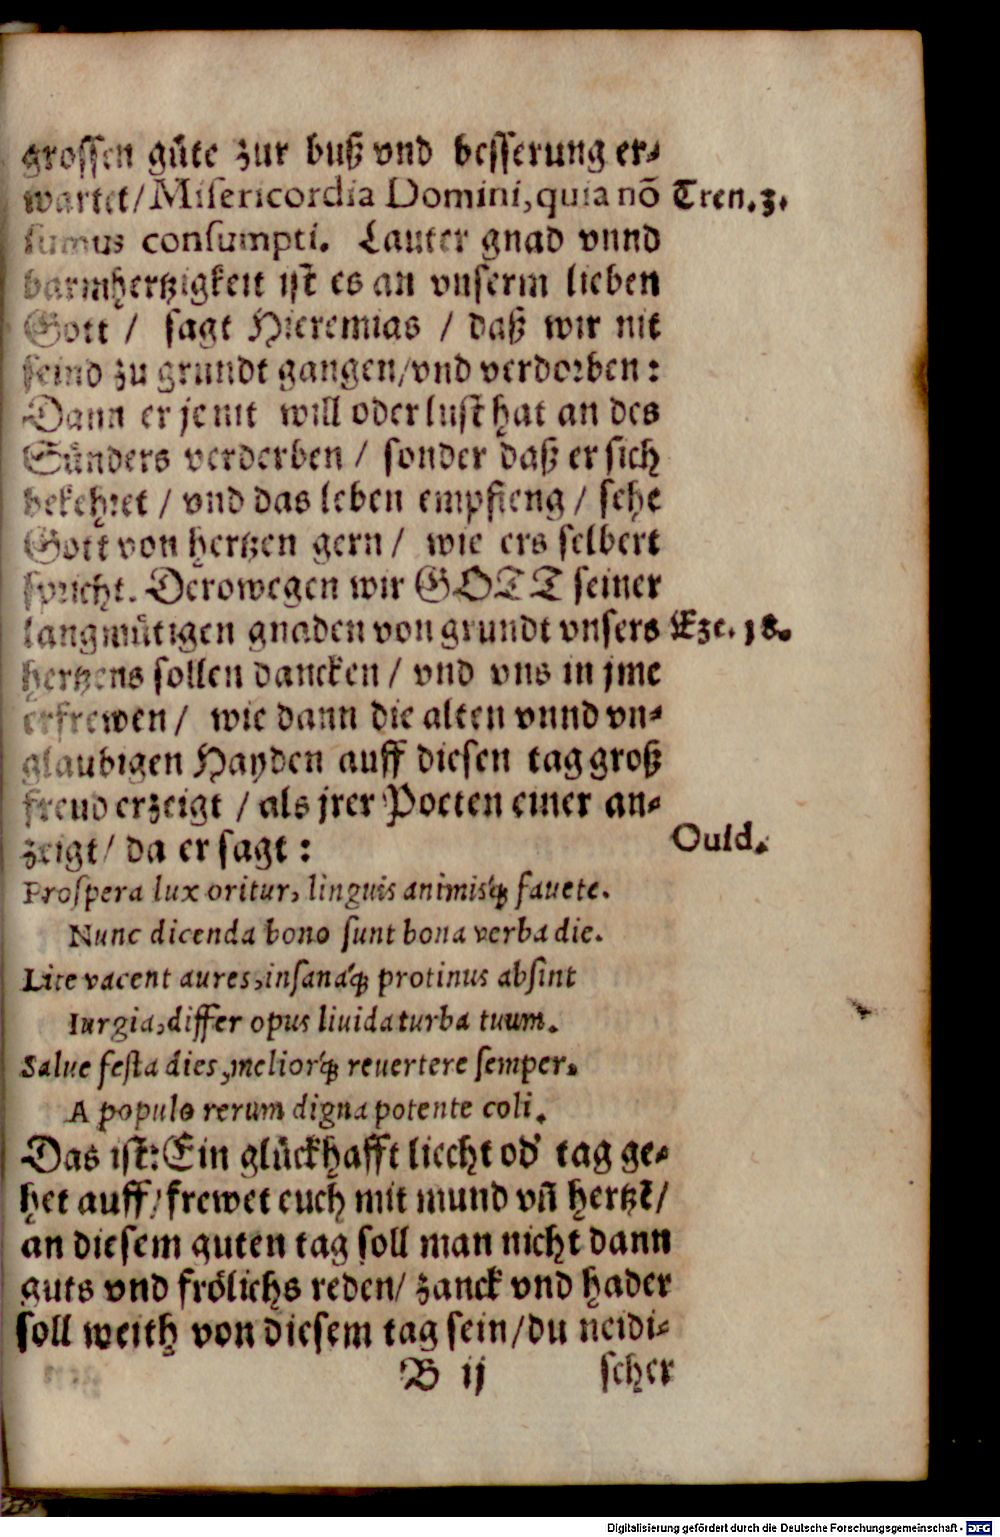 grossen guͤte zur buß vnd besserung er⸗
wartet/ Misericordia Domini, quia nõ
Tren. 3.
sumus consumpti. Lauter gnad vnnd
barmhertzigkeit ist es an vnserm lieben
Gott / sagt Hieremias / daß wir nit
seind zu grundt gangen/vnd verdorben:
Dann er je nit will oder lust hat an des
Suͤnders verderben / sonder daß er sich
bekehret / vnd das leben empfieng / sehe
Gott von hertzen gern / wie ers selbert
spricht. Derowegen wir GOTT seiner
langmuͤtigen gnaden von grundt vnsers
Eze. 18.
hertzens sollen dancken / vnd vns in jme
erfrewen / wie dann die alten vnnd vn⸗
glaubigen Hayden auff diesen tag groß
freud erzeigt / als jrer Poeten einer an⸗
zeigt / da er sagt :
Ouid.
Prospera lux oritur, linguis animisq́; fauete.
Nunc dicenda bono sunt bona verba die.
Lite vacent aures, insanáq; protinus absint
Iurgia, differ opus liuida turba tuum.
Salue festa dies, meliorq́; reuertere semper.
A populo rerum digna potente coli.
Das ist: Ein gluͤckhafft liecht od' tag ge⸗
het auff / frewet euch mit mund vñ hertzẽ/
an diesem guten tag soll man nicht dann
guts vnd froͤlichs reden/ zanck vnd hader
soll weith von diesem tag sein/du neidi⸗
B ij scher
Digitalisierung gefördert durch die Deutsche Forschungsgemeinschaft - DFG